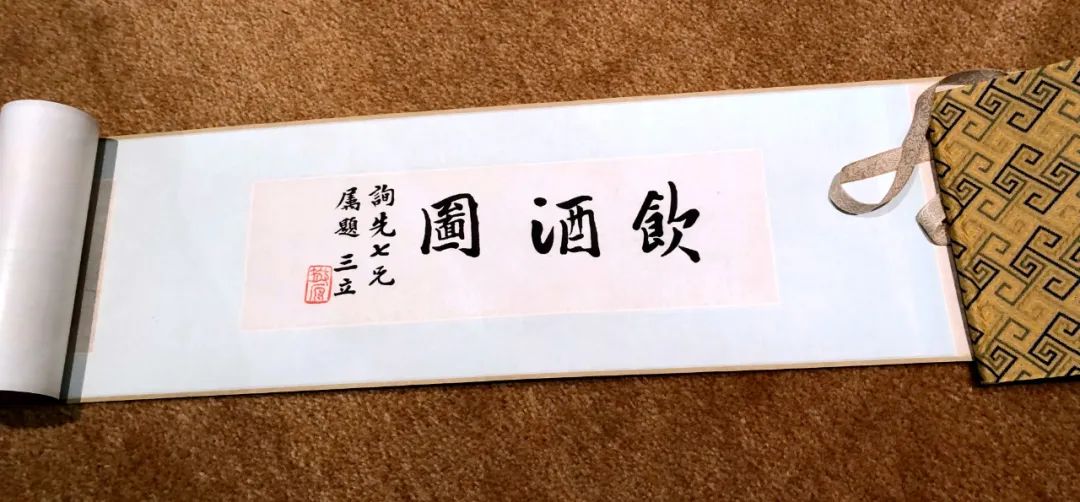 飲酒圖
詢先七兄
属題 三立